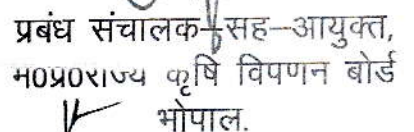 प्रबंध संचालक-सह-आयुक्त,
म0प्र0राज्य कृषि विपणन बोर्ड
भोपाल.